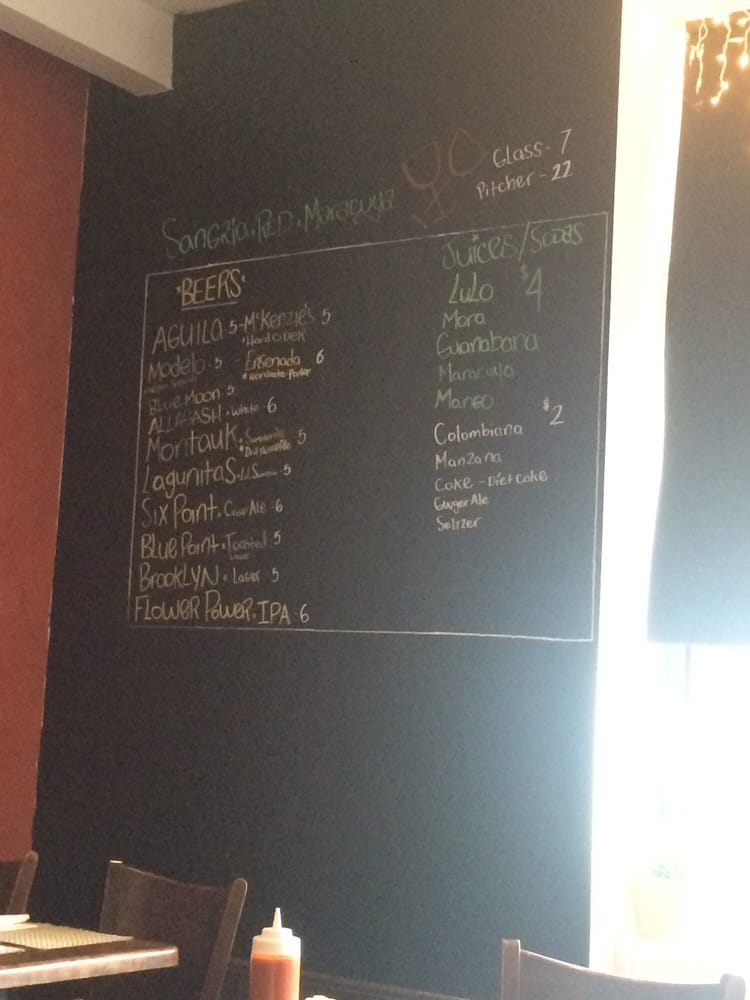 Glass - 7
Pitcher - 22
SANGRia . RED . Maracuya
*BEERS*
AGUILA 5 - McKenzie's 5
*Hard CiDER
Modelo 5 - Ensenada 6
*Horchata-Porter
Blue Moon 5
ALLAGASH . White 6
Montauk . 5
LagunitaS . 5
Six Point . Crisp Ale 6
Blue Point . Toasted 5
Lager
BrooklYN . Lager 5
FLOWER POWER . IPA 6
Juices/SODAS
LuLo $4
Mora
Guanabana
Maracuya
Mango
Colombiana $2
Manzana
Coke - Diet Coke
Ginger Ale
Seltzer